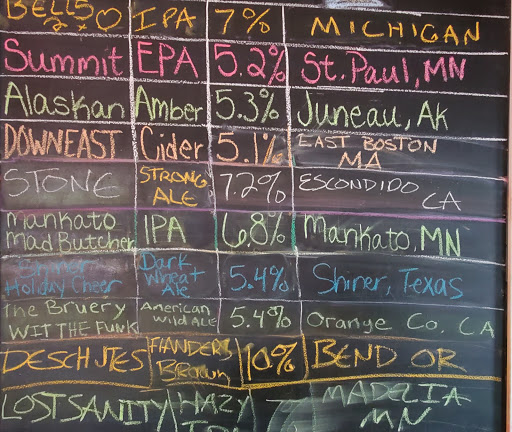 BELLS IPA 7% MICHIGAN
Summit EPA 5.2% St. Paul, MN
Alaskan Amber 5.3% Juneau, AK
DOWNEAST Cider 5.1% EAST BOSTON
MA
STONE STRONG
ALE 7.2% ESCONDIDO
CA
Mankato
Mad Butcher IPA 6.8% Mankato, MN
Shiner
Holiday Cheer Dark
Wheat
Ale 5.4% Shiner, Texas
The Bruery
WIT THE FUNK American
Wild ALE 5.4% Orange Co. CA
DESCHUTES FLANDERS
Brown 10% BEND OR
LOST SANITY HAZY
IPA — MADELIA
MN